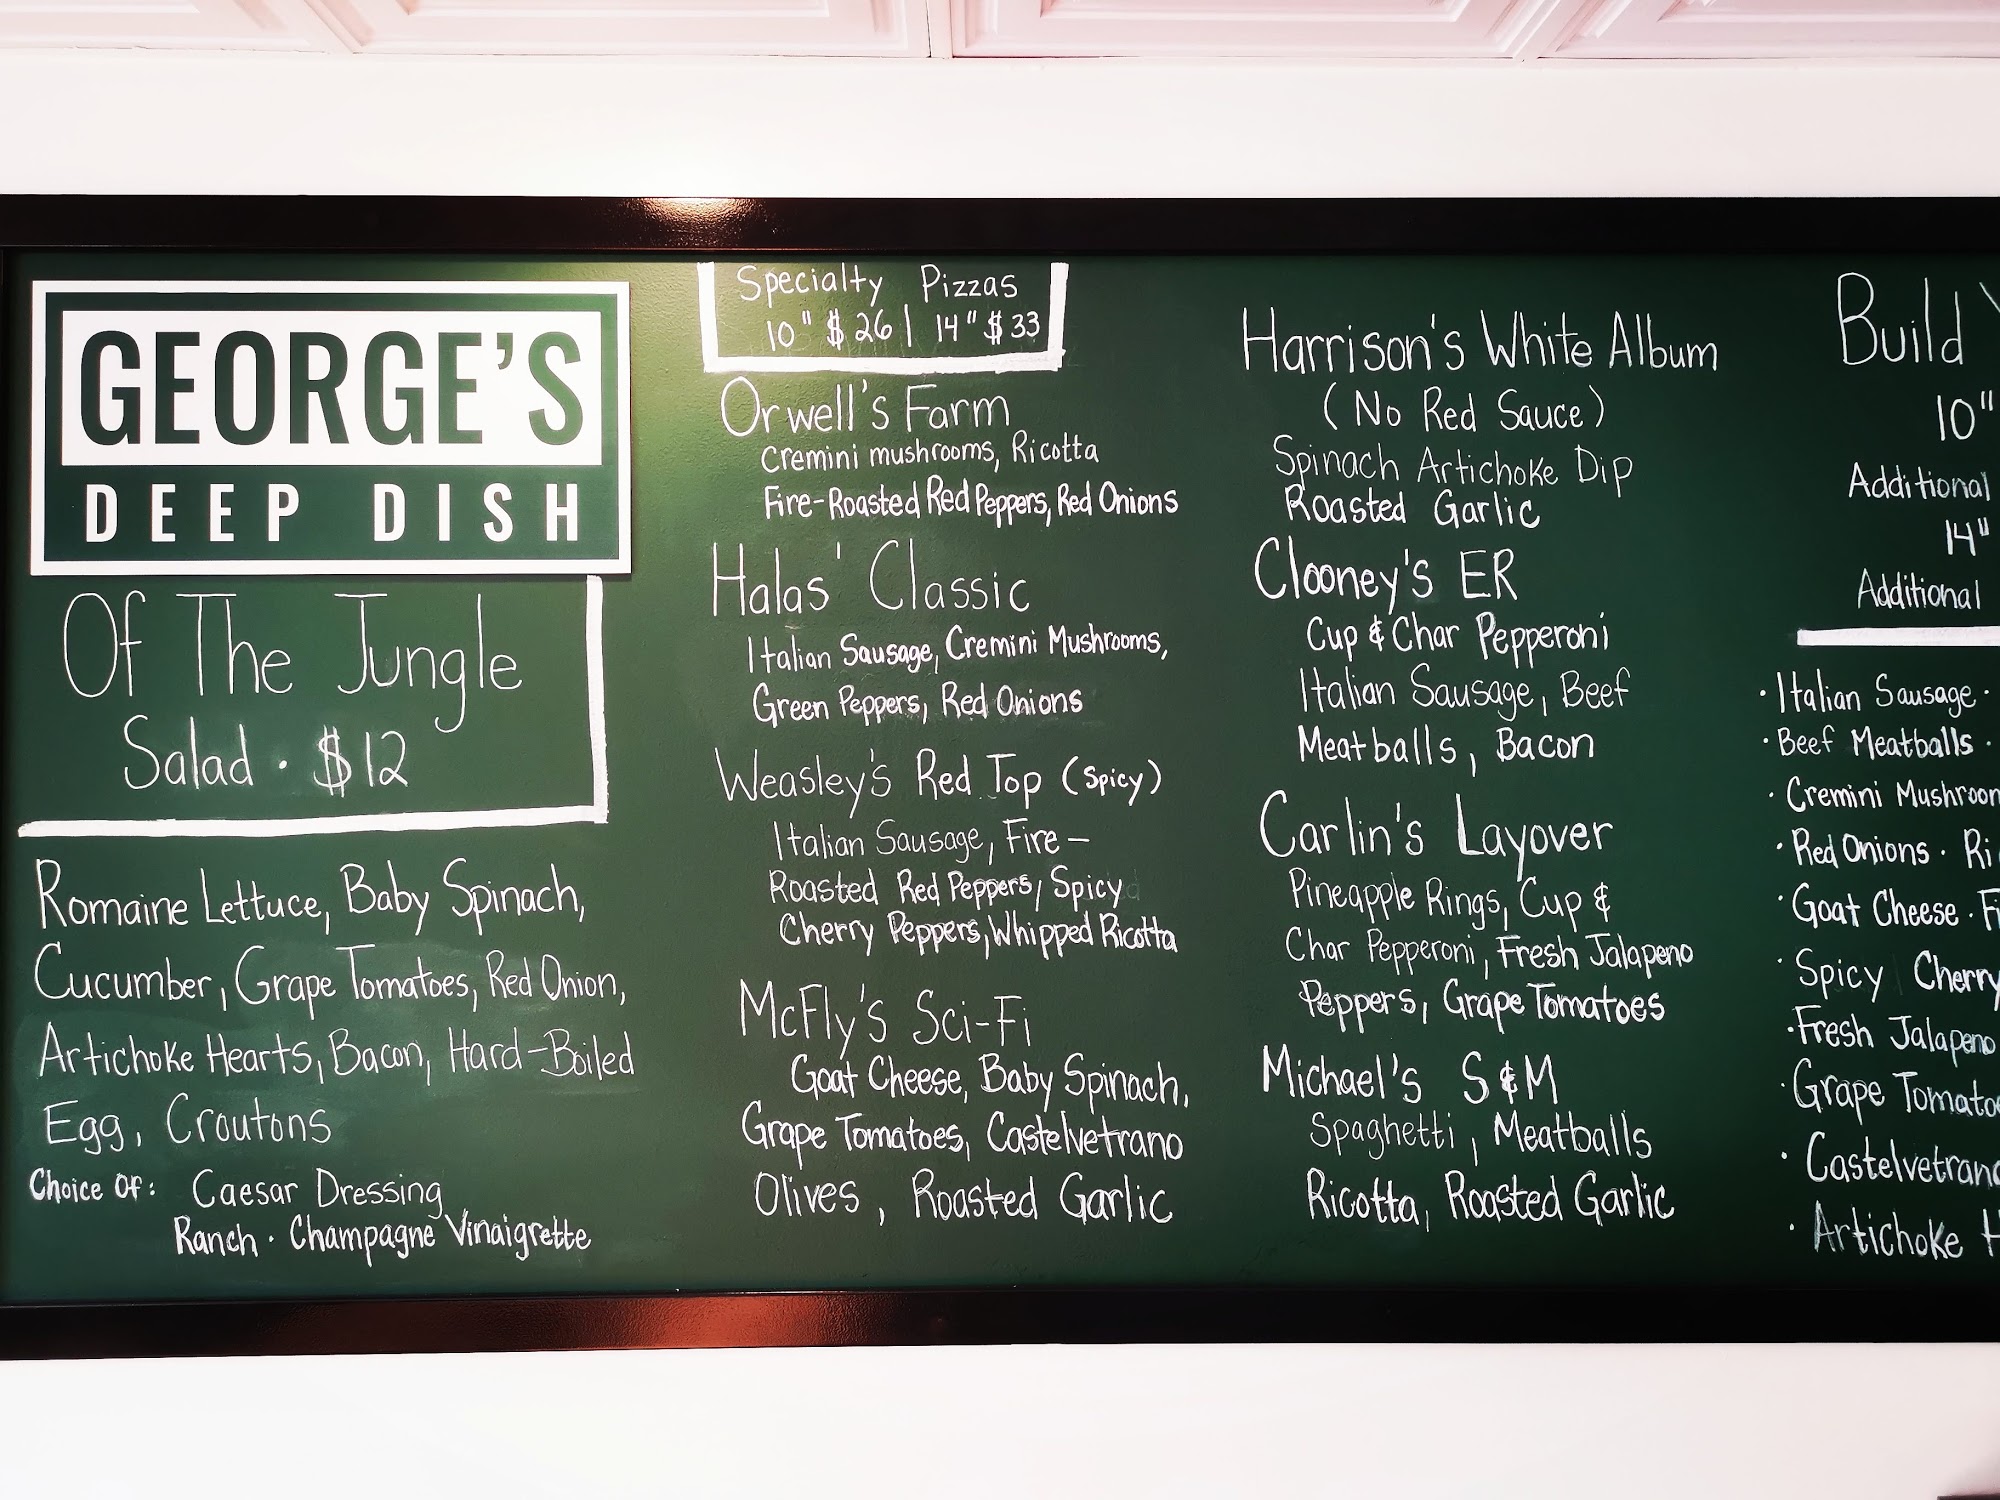 GEORGE'S
DEEP DISH
Of The Jungle
Salad · $12
Romaine Lettuce, Baby Spinach,
Cucumber, Grape Tomatoes, Red Onion,
Artichoke Hearts, Bacon, Hard-Boiled
Egg, Croutons
Choice Of: Caesar Dressing
Ranch · Champagne Vinaigrette
Specialty Pizzas
10" $26 | 14" $33
Orwell's Farm
Cremini mushrooms, Ricotta
Fire-Roasted Red Peppers, Red Onions
Halas' Classic
Italian Sausage, Cremini Mushrooms,
Green Peppers, Red Onions
Weasley's Red Top (Spicy)
Italian Sausage, Fire-
Roasted Red Peppers, Spicy
Cherry Peppers, Whipped Ricotta
McFly's Sci-Fi
Goat Cheese, Baby Spinach,
Grape Tomatoes, Castelvetrano
Olives, Roasted Garlic
Harrison's White Album
(No Red Sauce)
Spinach Artichoke Dip
Roasted Garlic
Clooney's ER
Cup & Char Pepperoni
Italian Sausage, Beef
Meatballs, Bacon
Carlin's Layover
Pineapple Rings, Cup &
Char Pepperoni, Fresh Jalapeno
Peppers, Grape Tomatoes
Michael's S&M
Spaghetti, Meatballs
Ricotta, Roasted Garlic
Build
10"
Additional
14"
Additional
· Italian Sausage ·
· Beef Meatballs ·
· Cremini Mushroom
· Red Onions · Ri
· Goat Cheese · Fi
· Spicy Cherry
· Fresh Jalapeno
· Grape Tomatoe
· Castelvetrano
· Artichoke H